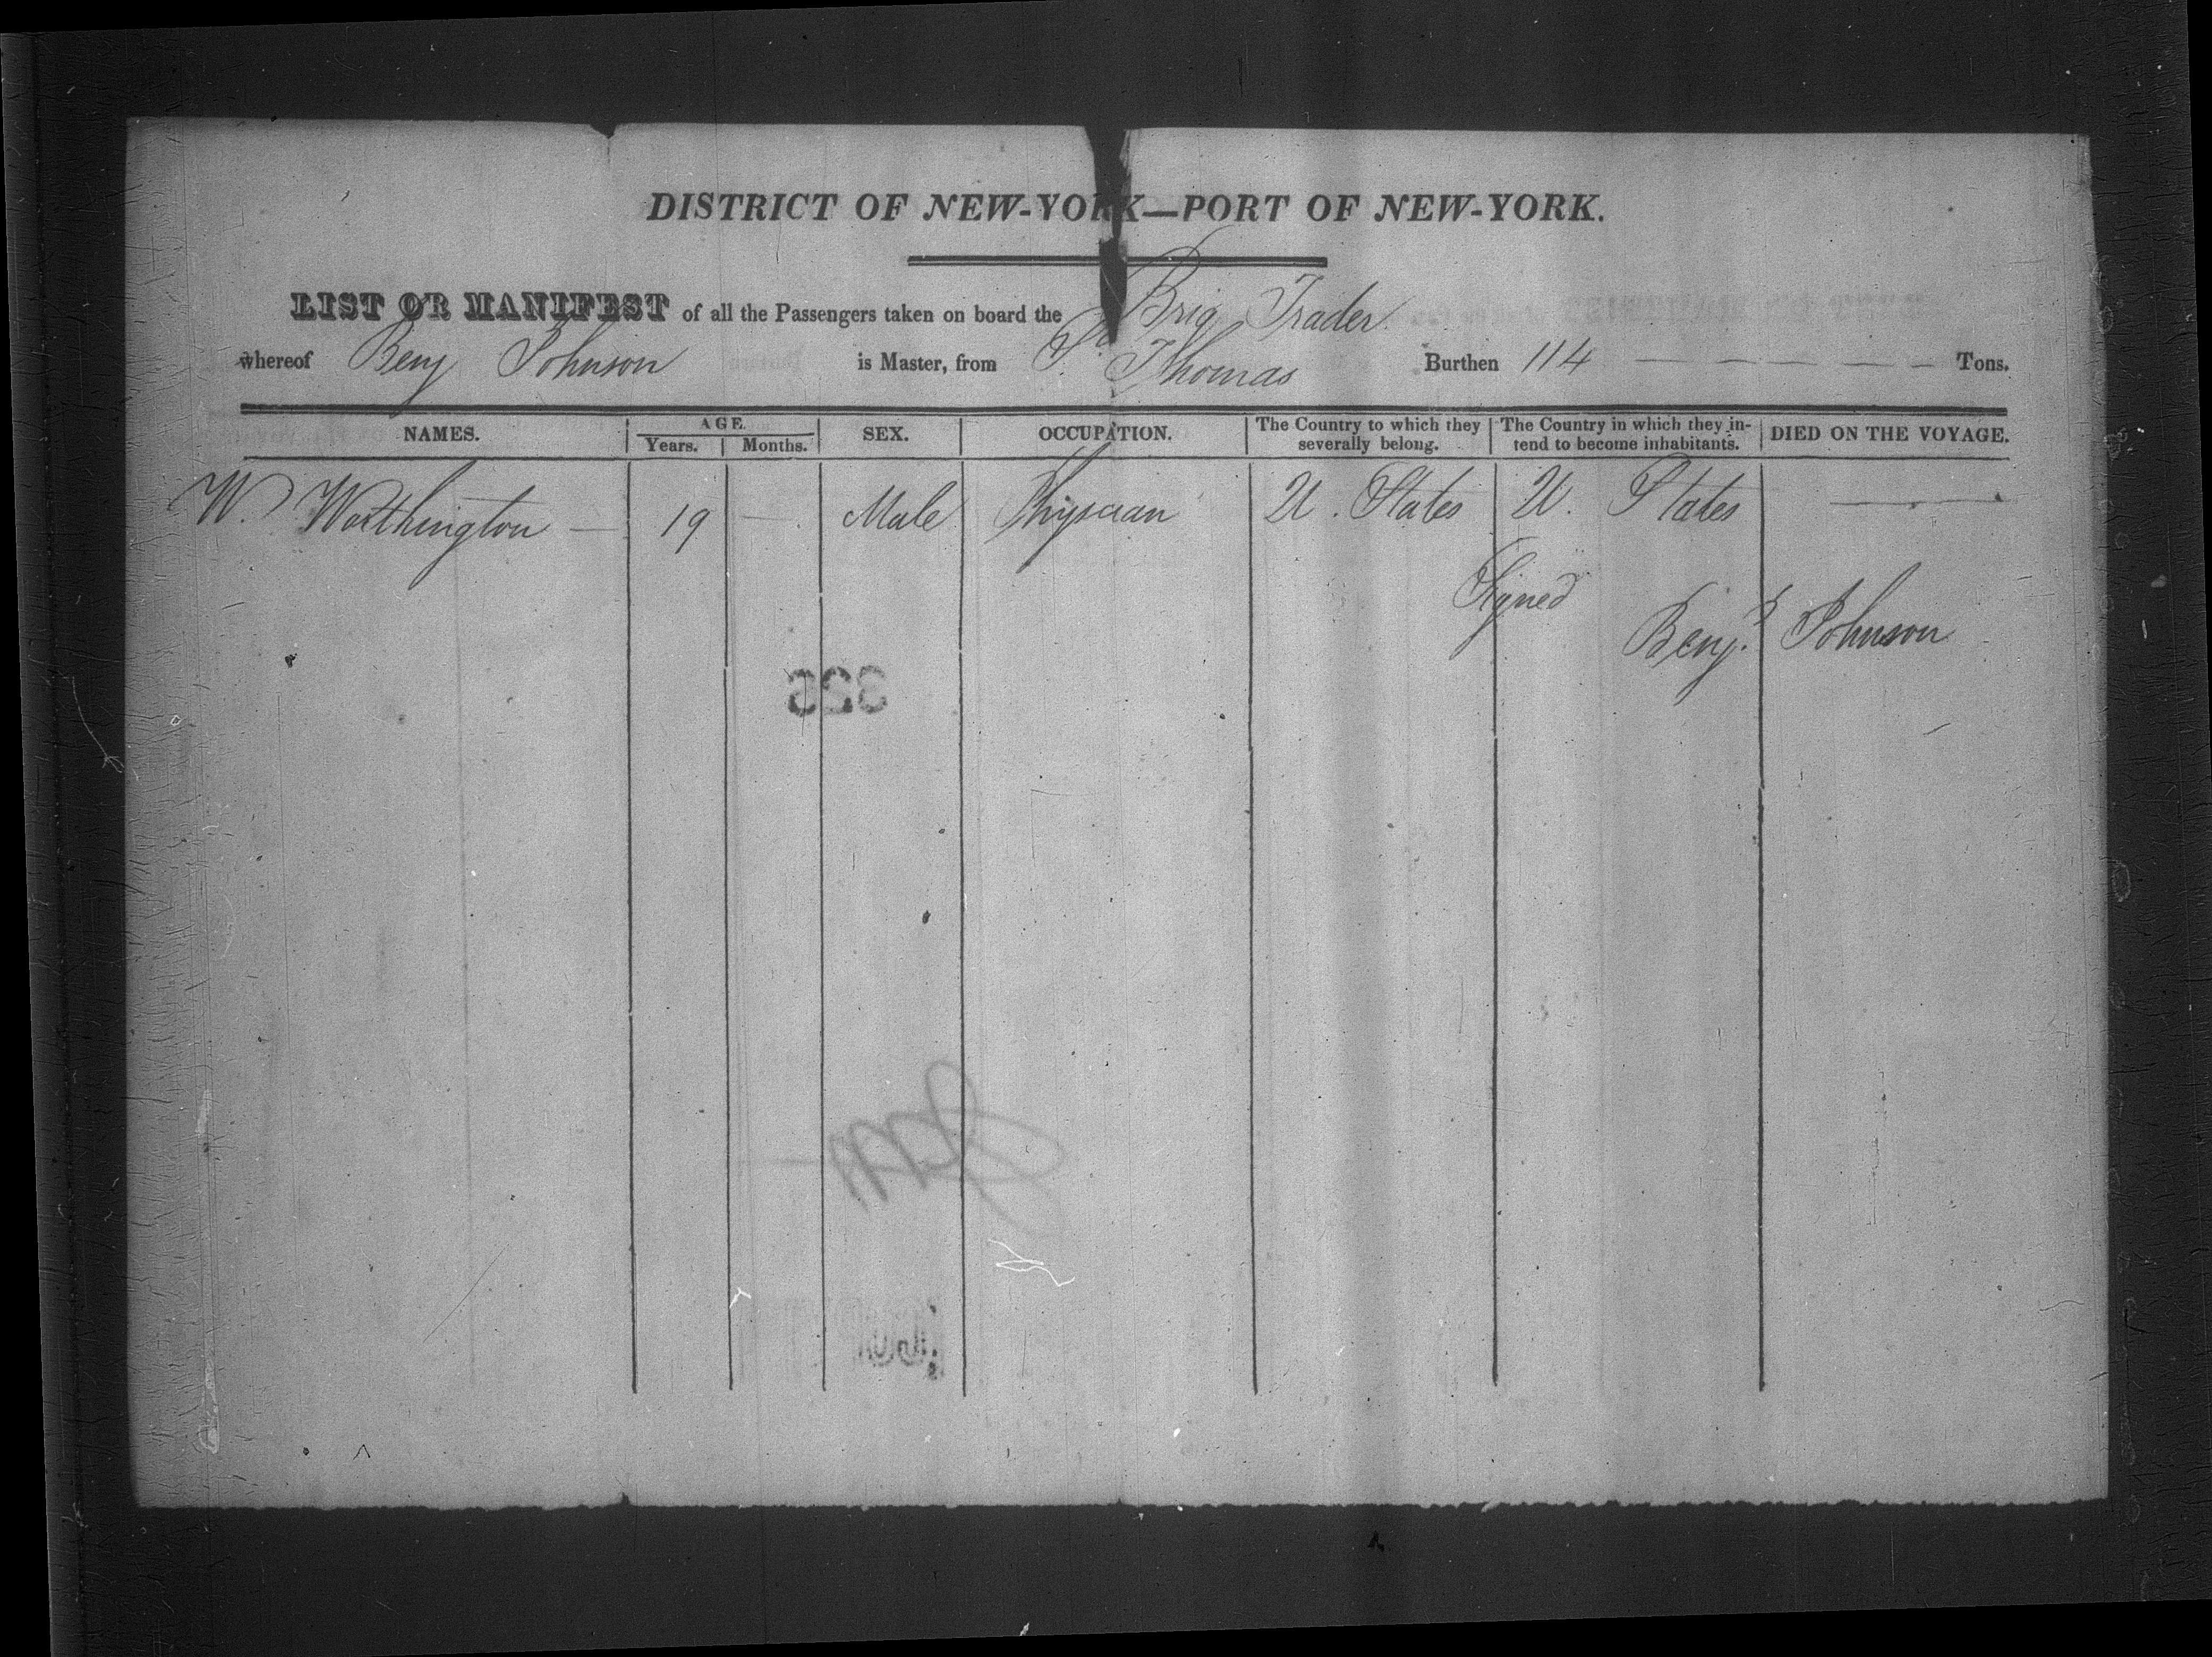 DISTRICT OF NEW-YORK—PORT OF NEW-YORK.
LIST OR MANIFEST of all the Passengers taken on board the Brig Trader
whereof Benj Johnson is Master, from St. Thomas Burthen 114 — — — — — Tons.
NAMES. AGE. Years. Months. SEX. OCCUPATION. The Country to which they severally belong. The Country in which they intend to become inhabitants. DIED ON THE VOYAGE.
W. Worthington — 19 — Male Physician U. States U. States —
Signed
Benj. Johnson
325